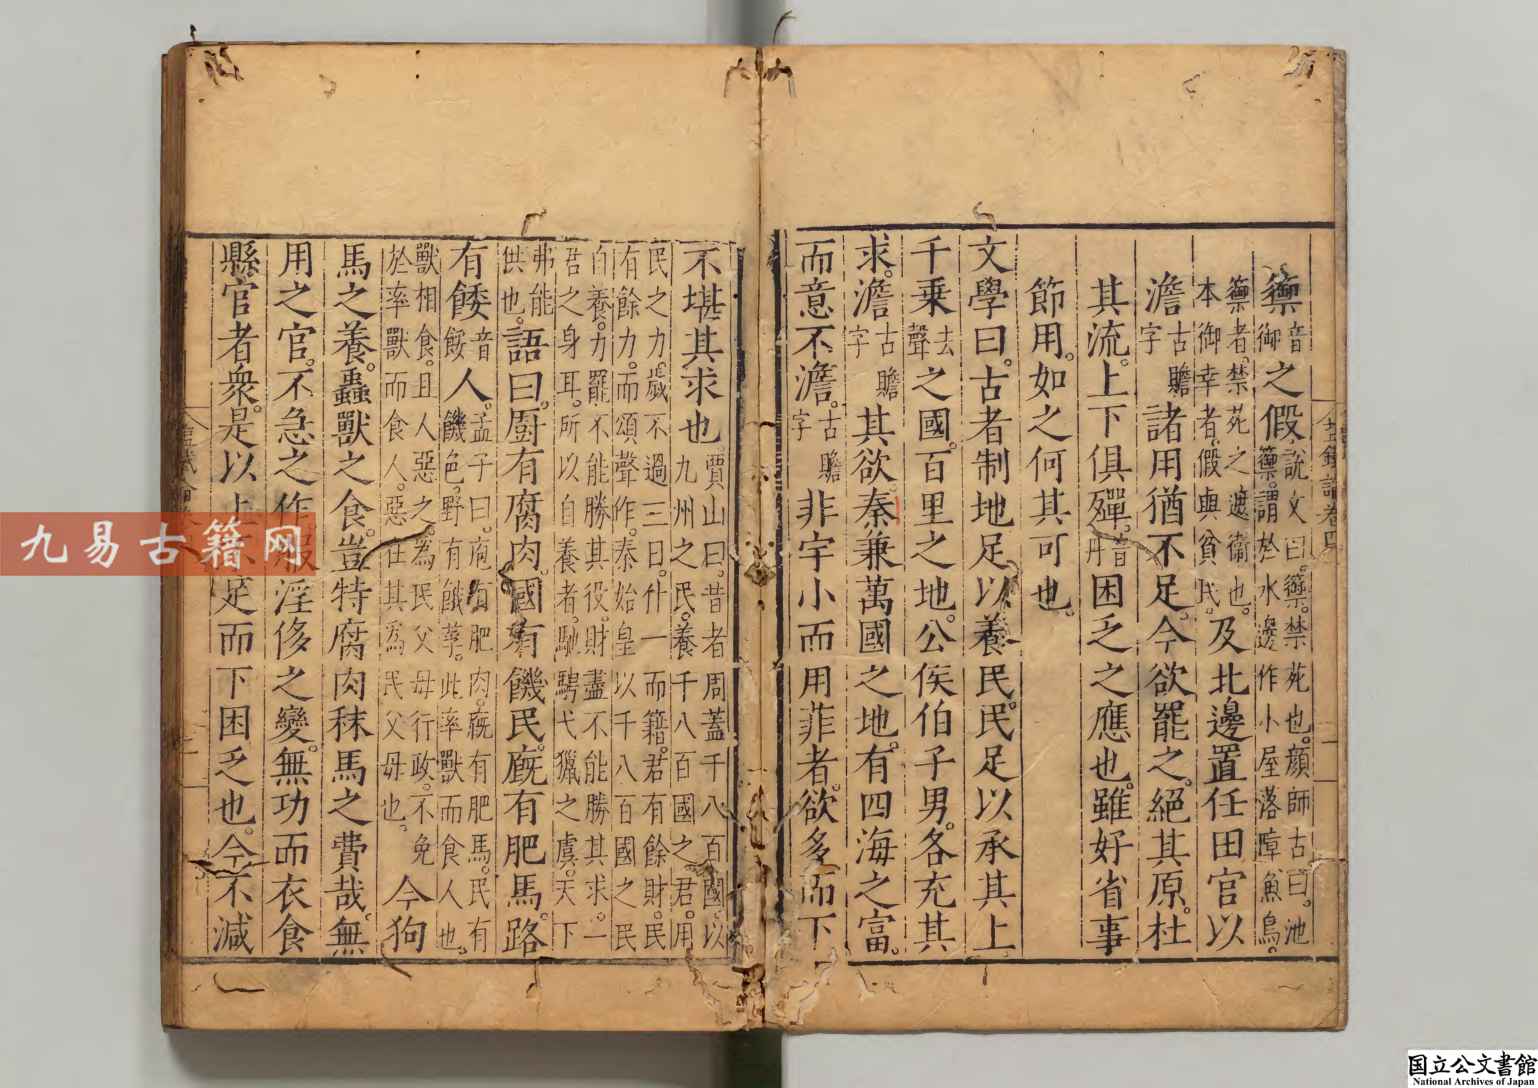 籞音御之假說文曰。籞。禁苑也。顔師古曰。池
籞。謂於水邊作小屋落障魚鳥。
籞者。禁苑之遮衛也。
本御幸者。假與貧民。及北邊置任田官以
澹古贍字諸用猶不足。今欲罷之。絕其原。杜
其流。上下俱殫。音丹困乏之應也。雖好省事
節用。如之何其可也。
文學曰。古者制地足以養民。民足以承其上
千乘去聲之國。百里之地。公侯伯子男。各充其
求。澹古贍字其欲秦兼萬國之地。有四海之富。
而意不澹。古贍字非宇小而用菲者。欲多而下
不堪其求也。賈山曰。昔者周蓋千八百國。以
九州之民。養千八百國之君。用
民之力。歲不過三日。什一而籍。君有餘財。民
有餘力。而頌聲作。秦始皇以千八百國之民
自養。力罷不能勝其役。財盡不能勝其求。一
君之身耳。所以自養者。馳騁弋獵之虞。天下
弗能供也。語曰。廚有腐肉。國有饑民。廐有肥馬。路
有餧音餒人。孟子曰。庖有肥肉。廐有肥馬。民有
饑色。野有餓莩。此率獸而食人也。
獸相食。且人惡之。為民父母行政。不免
於率獸而食人。惡在其為民父母也。今狗
馬之養。蟲獸之食。豈特腐肉秣馬之費哉。無
用之官。不急之作。服淫侈之變。無功而衣食
縣官者衆。是以上不足而下困乏也。今不減
鹽鐵論卷四
九易古籍网
国立公文書館
National Archives of Japan